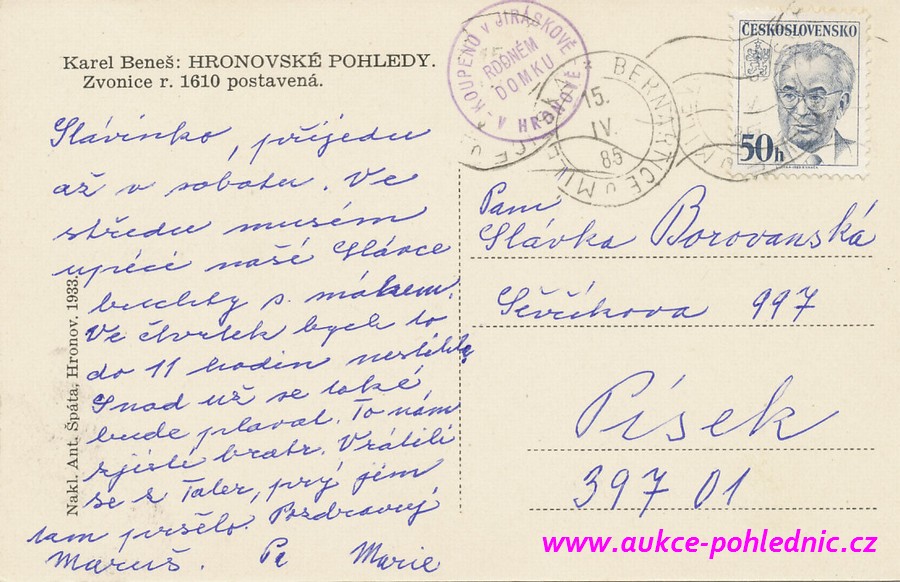 Karel Beneš: HRONOVSKÉ POHLEDY.
Zvonice r. 1610 postavená.
* KOUPENO V JIRÁSKOVĚ *
RODNÉM
DOMKU
V HRONOVĚ
BERNARTICE U MIL
15.
IV.
85
ČESKOSLOVENSKO
50h
Slávinko, přijedu
až v sobotu. Ve
středu musém
upéci naší Slávce
buchty s mákem.
Ve čtvrtek bych to
do 11 hodin nestihla.
Snad už se také
bude plavat. To nám
zjistí bratr. Vrátili
se z Tater, prý jim
tam pršelo. Pozdravuj
Maruš. Pa Marie
Nakl. Ant. Špáta, Hronov. 1933.
Paní
Slávka Borovanská
Ševčíkova 997
Písek
397 01
www.aukce-pohlednic.cz